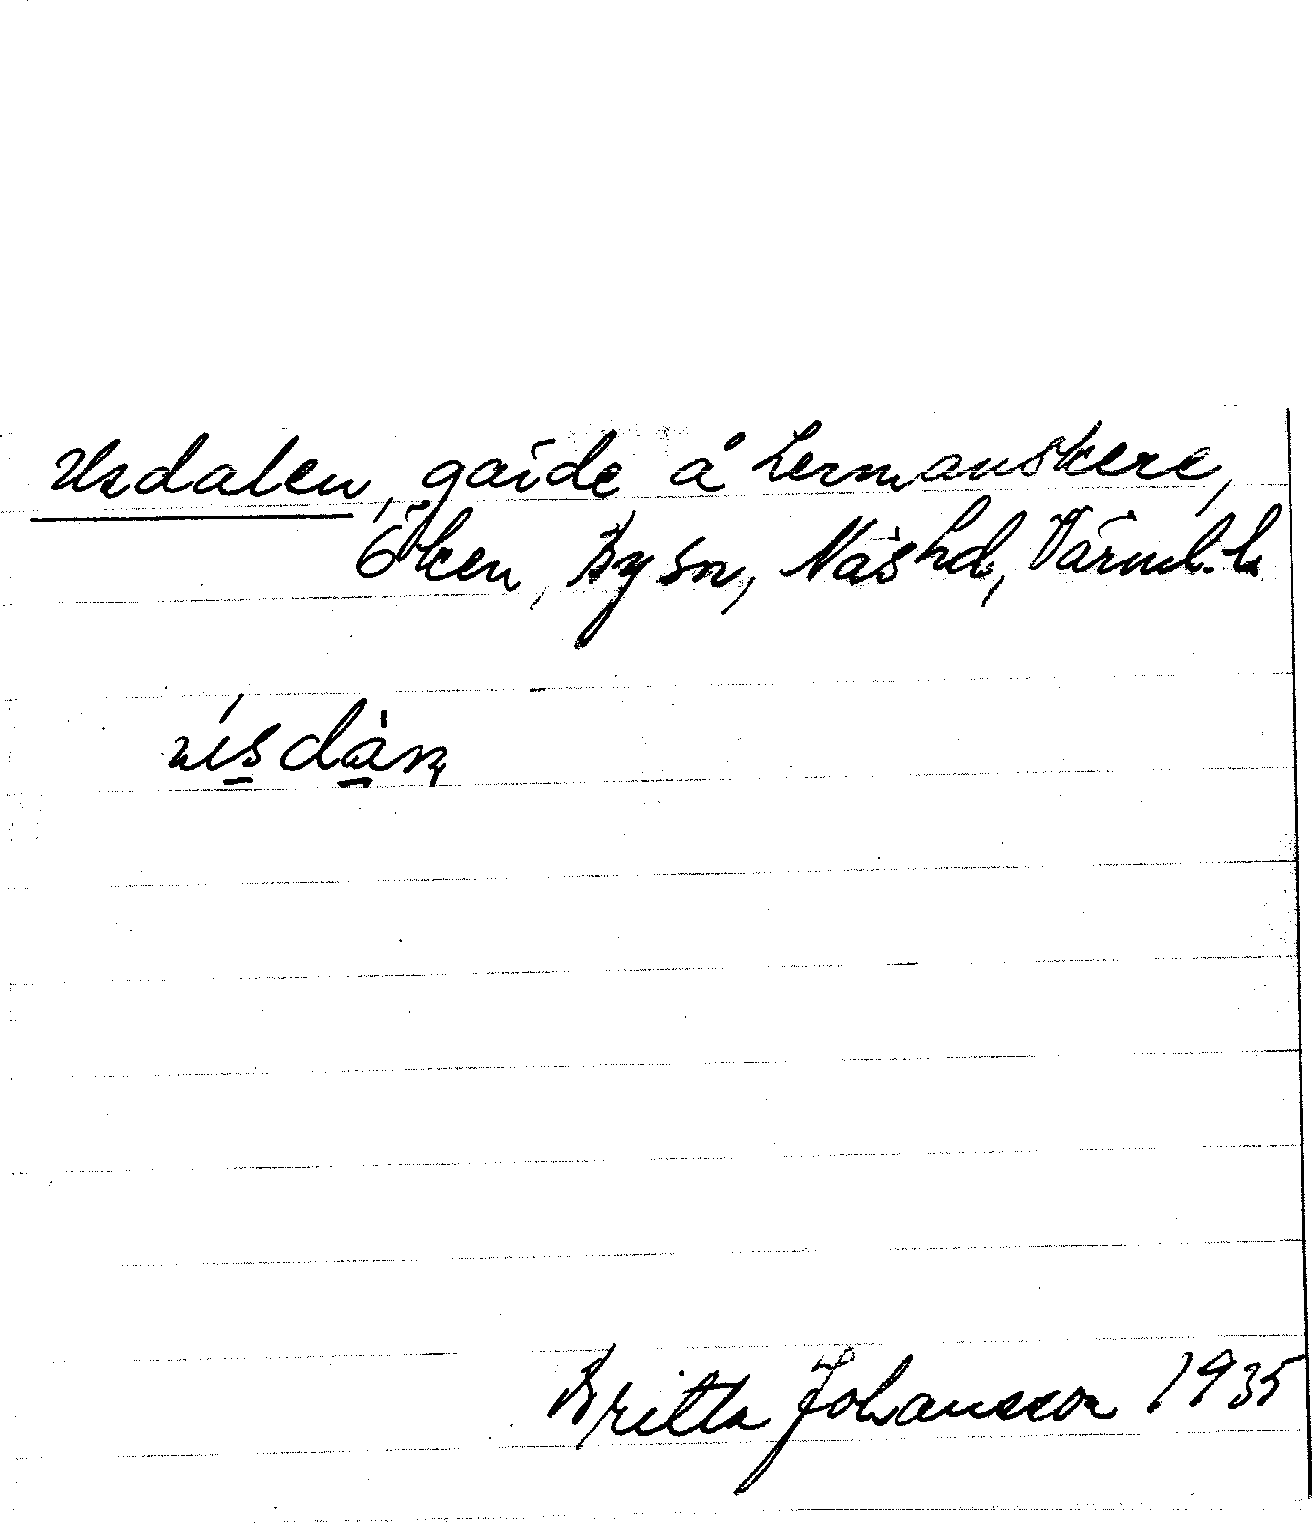 Usdalen, gärde å Lermanskere,
Öken, By sn, Näshd, Värml. l.
Britta Johansson 1935